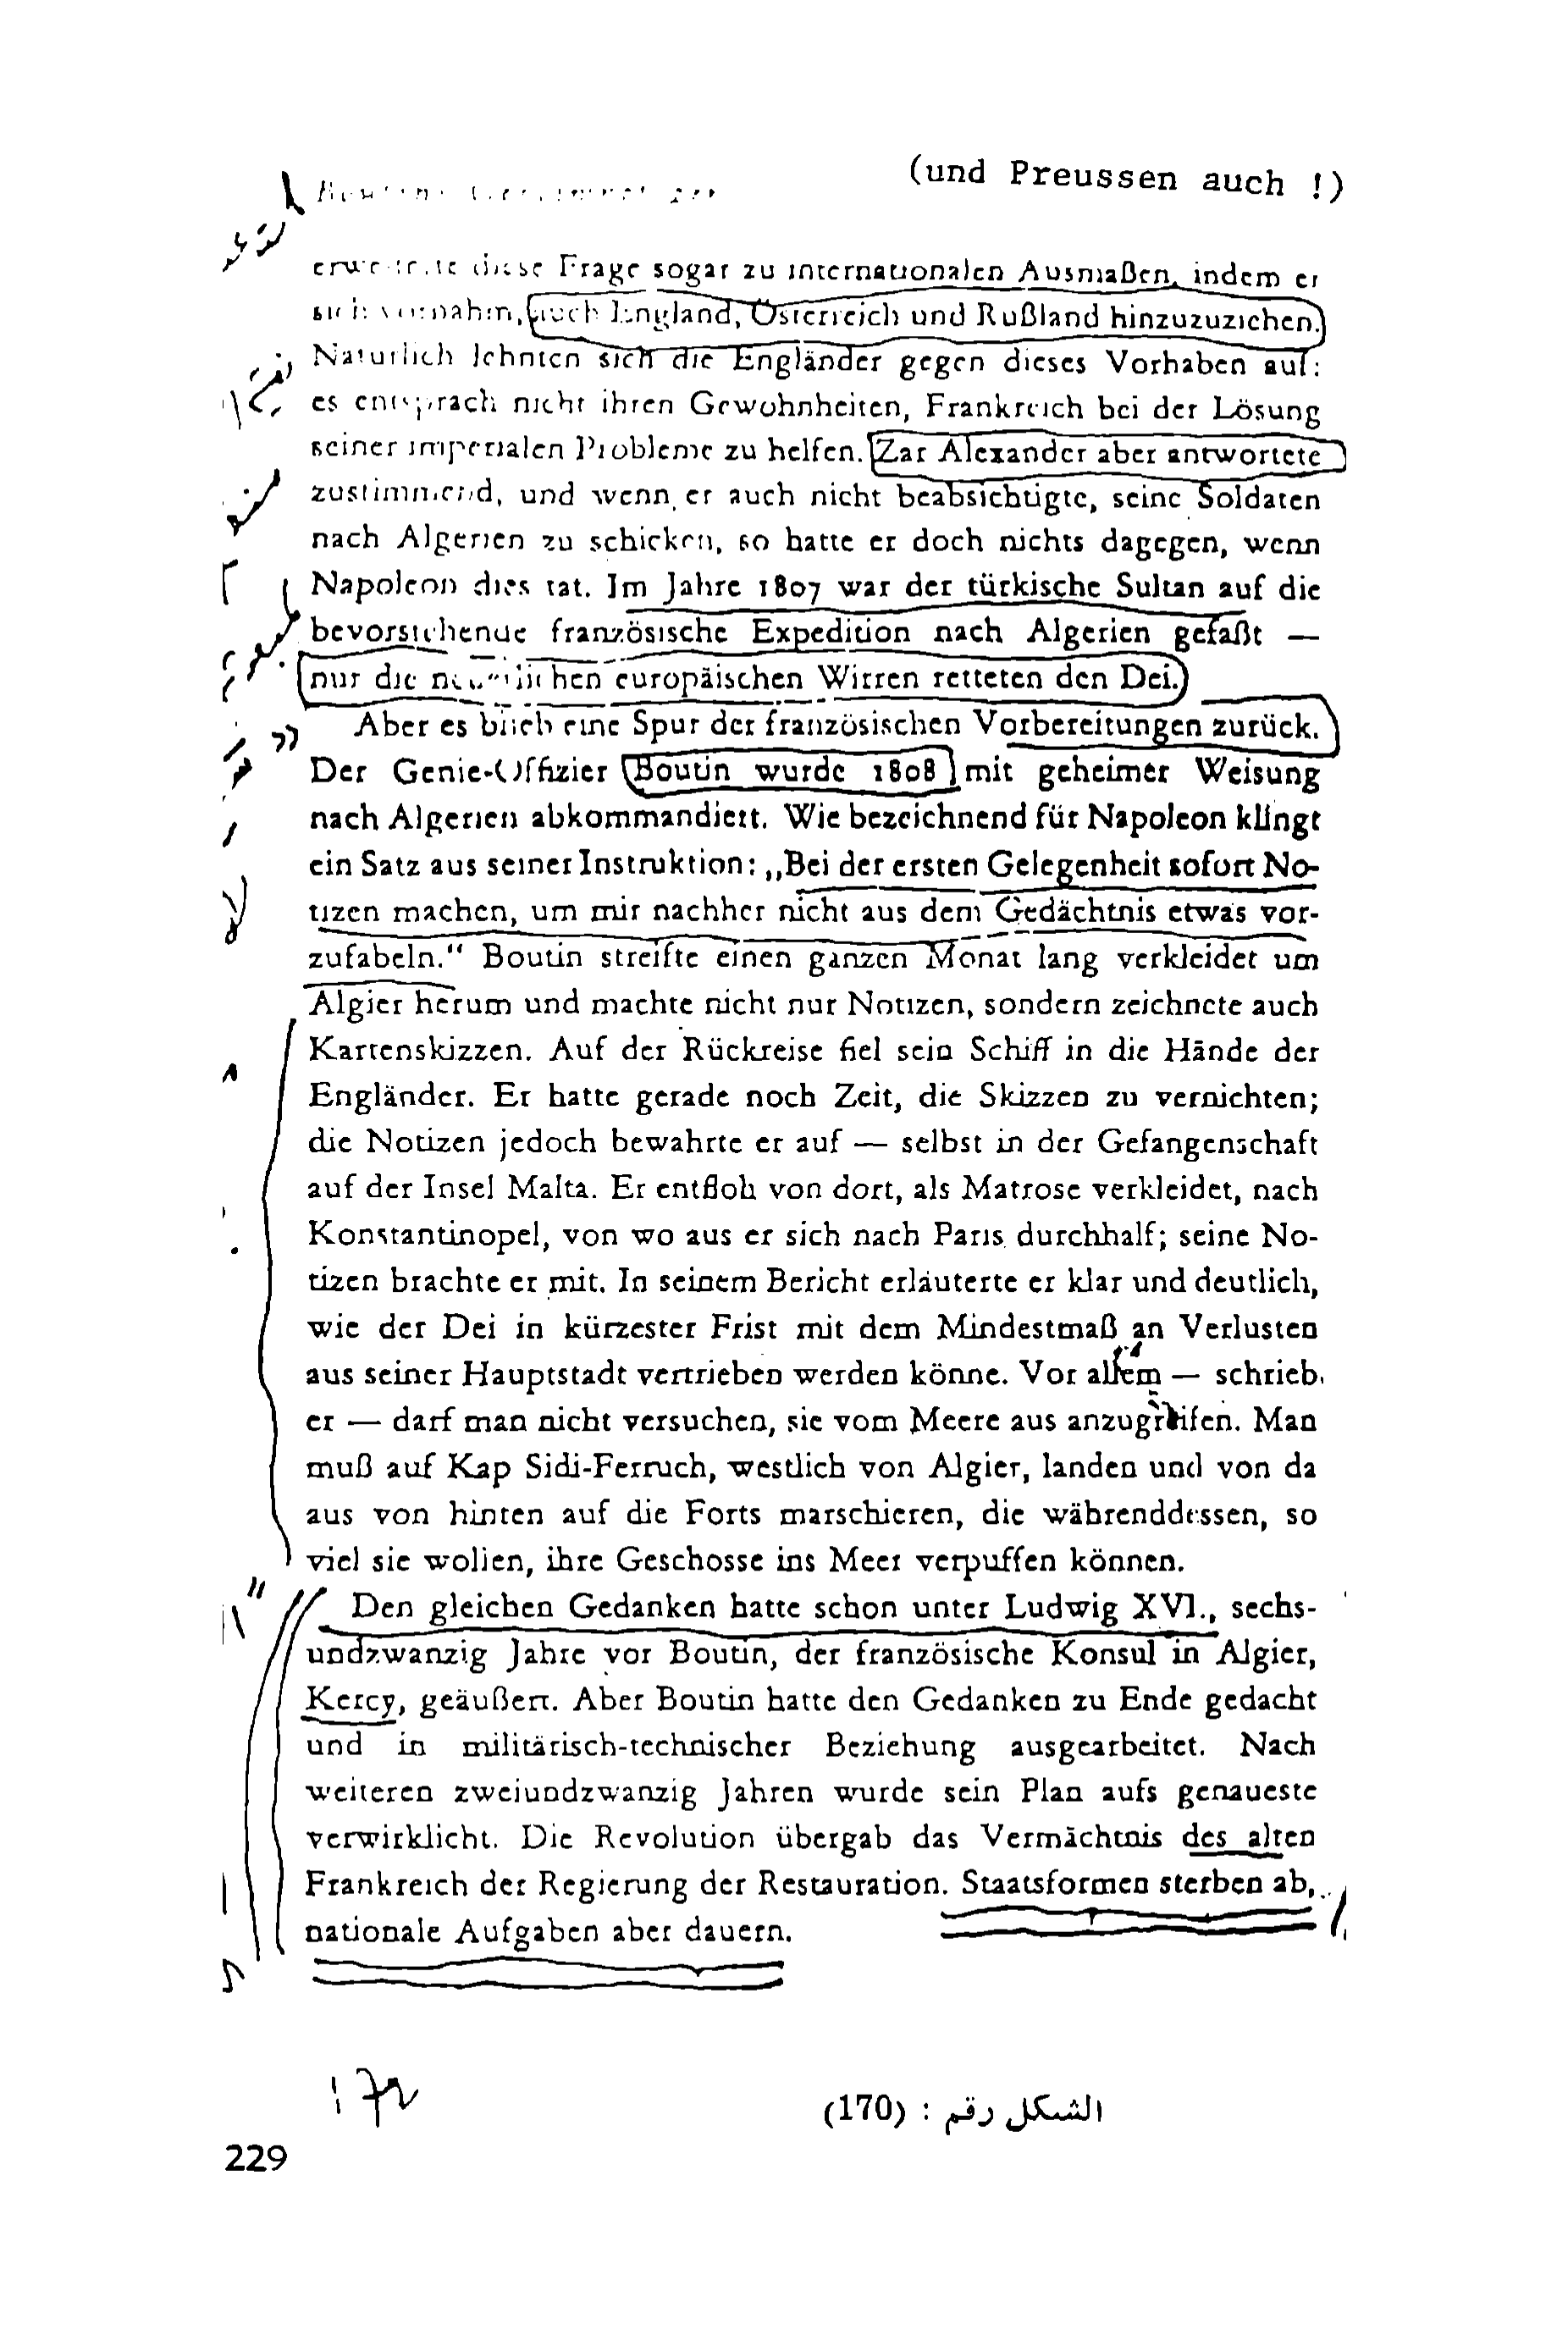 (und Preussen auch !)
erweiterte diese Frage sogar zu internationalen Ausmaßen, indem er
sich vornahm, auch England, Österreich und Rußland hinzuzuziehen.
Naturlich lehnten sich die Engländer gegen dieses Vorhaben auf:
es entsprach nicht ihren Gewohnheiten, Frankreich bei der Lösung
seiner imperialen Probleme zu helfen. Zar Alexander aber antwortete
zustimmend, und wenn er auch nicht beabsichtigte, seine Soldaten
nach Algerien zu schicken, so hatte er doch nichts dagegen, wenn
Napoleon dies tat. Im Jahre 1807 war der türkische Sultan auf die
bevorstehende französische Expedition nach Algerien gefaßt —
nur die europäischen Wirren retteten den Dei.
Aber es blieb eine Spur der französischen Vorbereitungen zurück.
Der Genie-Offizier Boutin wurde 1808 mit geheimer Weisung
nach Algerien abkommandiert. Wie bezeichnend für Napoleon klingt
ein Satz aus seiner Instruktion: „Bei der ersten Gelegenheit sofort No-
tizen machen, um mir nachher nicht aus dem Gedächtnis etwas vor-
zufabeln." Boutin streifte einen ganzen Monat lang verkleidet um
Algier herum und machte nicht nur Notizen, sondern zeichnete auch
Kartenskizzen. Auf der Rückreise fiel sein Schiff in die Hände der
Engländer. Er hatte gerade noch Zeit, die Skizzen zu vernichten;
die Notizen jedoch bewahrte er auf — selbst in der Gefangenschaft
auf der Insel Malta. Er entfloh von dort, als Matrose verkleidet, nach
Konstantinopel, von wo aus er sich nach Paris durchhalf; seine No-
tizen brachte er mit. In seinem Bericht erläuterte er klar und deutlich,
wie der Dei in kürzester Frist mit dem Mindestmaß an Verlusten
aus seiner Hauptstadt vertrieben werden könne. Vor allem — schrieb
er — darf man nicht versuchen, sie vom Meere aus anzugreifen. Man
muß auf Kap Sidi-Ferruch, westlich von Algier, landen und von da
aus von hinten auf die Forts marschieren, die währenddessen, so
viel sie wollen, ihre Geschosse ins Meer verpuffen können.
Den gleichen Gedanken hatte schon unter Ludwig XVI., sechs-
undzwanzig Jahre vor Boutin, der französische Konsul in Algier,
Kercy, geäußert. Aber Boutin hatte den Gedanken zu Ende gedacht
und in militärisch-technischer Beziehung ausgearbeitet. Nach
weiteren zweiundzwanzig Jahren wurde sein Plan aufs genaueste
verwirklicht. Die Revolution übergab das Vermächtnis des alten
Frankreich der Regierung der Restauration. Staatsformen sterben ab,
nationale Aufgaben aber dauern.
الشكل رقم : (170)
229